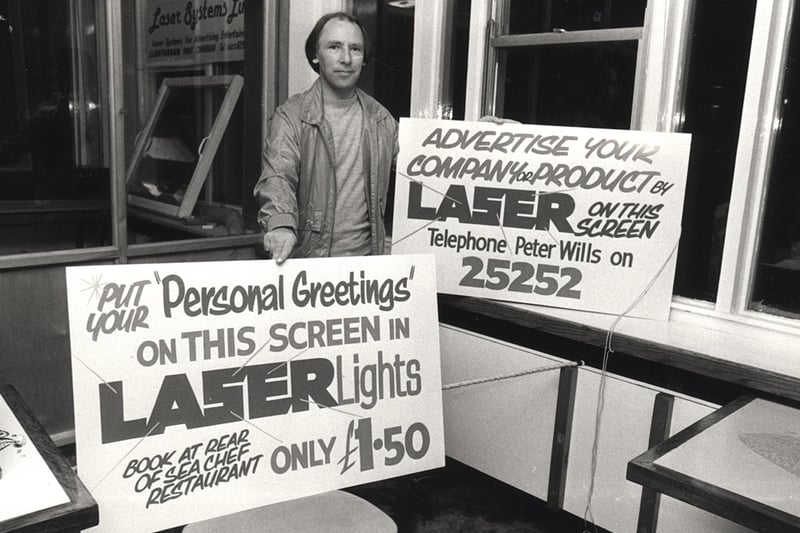 Laser Systems
Laser Systems For Advertising, Entertainment
PUT
YOUR "Personal Greetings"
ON THIS SCREEN IN
LASER Lights
BOOK AT REAR
OF SEA CHEF
RESTAURANT
ONLY £1·50
ADVERTISE YOUR
COMPANY OR PRODUCT BY
LASER ON THIS
SCREEN
Telephone Peter Wills on
25252